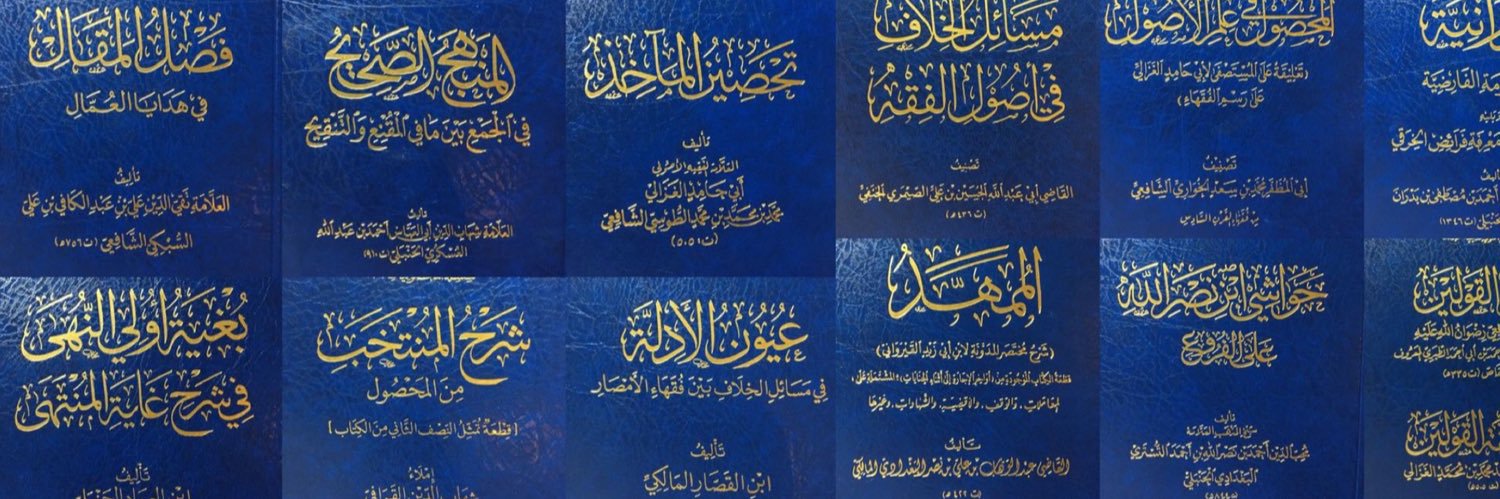 فصل المقال
في هدايا العمال
تأليف
العلامة تقي الدين علي بن عبد الكافي بن علي
السبكي الشافعي (ت ٧٥٦ه)
المنهج الصحيح
في الجمع بين ما في المقنع والتنقيح
تأليف
العلامة شهاب الدين أبي العباس أحمد بن عبد الله
العسكري الحنبلي (ت ٩١٠ه)
تحصين المآخذ
تأليف
العلامة الفقيه الأصولي
أبي حامد الغزالي
محمد بن محمد بن محمد الطوسي الشافعي
(ت ٥٠٥ه)
مسائل الخلاف
في أصول الفقه
تصنيف
القاضي أبي عبد الله الحسين بن علي الصيمري الحنفي
(ت ٤٣٦ه)
المحصول في علم الأصول
(تعليقة على المستصفى لأبي حامد الغزالي
على رسم الفقهاء)
تصنيف
أبي المظفر محمد بن سعد الخواري الشافعي
من فقهاء القرن السادس
الفارضية
معرفة فرائض الخرقي
تأليف
أحمد بن مصطفى بن بدران
(ت ١٣٤٦ه)
بغية أولي النهى
في شرح غاية المنتهى
تأليف
ابن العماد الحنبلي
شرح المنتخب
من المحصول
[قطعة تمثل النصف الثاني من الكتاب]
إملاء
شهاب الدين القرافي
عيون الأدلة
في مسائل الخلاف بين فقهاء الأمصار
تأليف
ابن القصار المالكي
الممهد
(شرح مختصر المدونة لابن أبي زيد القيرواني)
قطعة الكتاب الموجودة من: أواخر الإجارة إلى أثناء الجنايات، المشتملة على:
المعاملات، والوقف، والأقضية، والشهادات، وغيرها
تأليف
القاضي عبد الوهاب بن علي بن نصر البغدادي المالكي
(ت ٤٢٢ ه)
حواشي ابن نصر الله
على الفروع
تأليف
محب الدين أحمد بن نصر الله بن أحمد التستري
البغدادي الحنبلي
(ت ٨٤٤ه)
القولين
رضوان الله عليه
(ت ٣٣٥ه)
القولين
بن محمد الغزالي